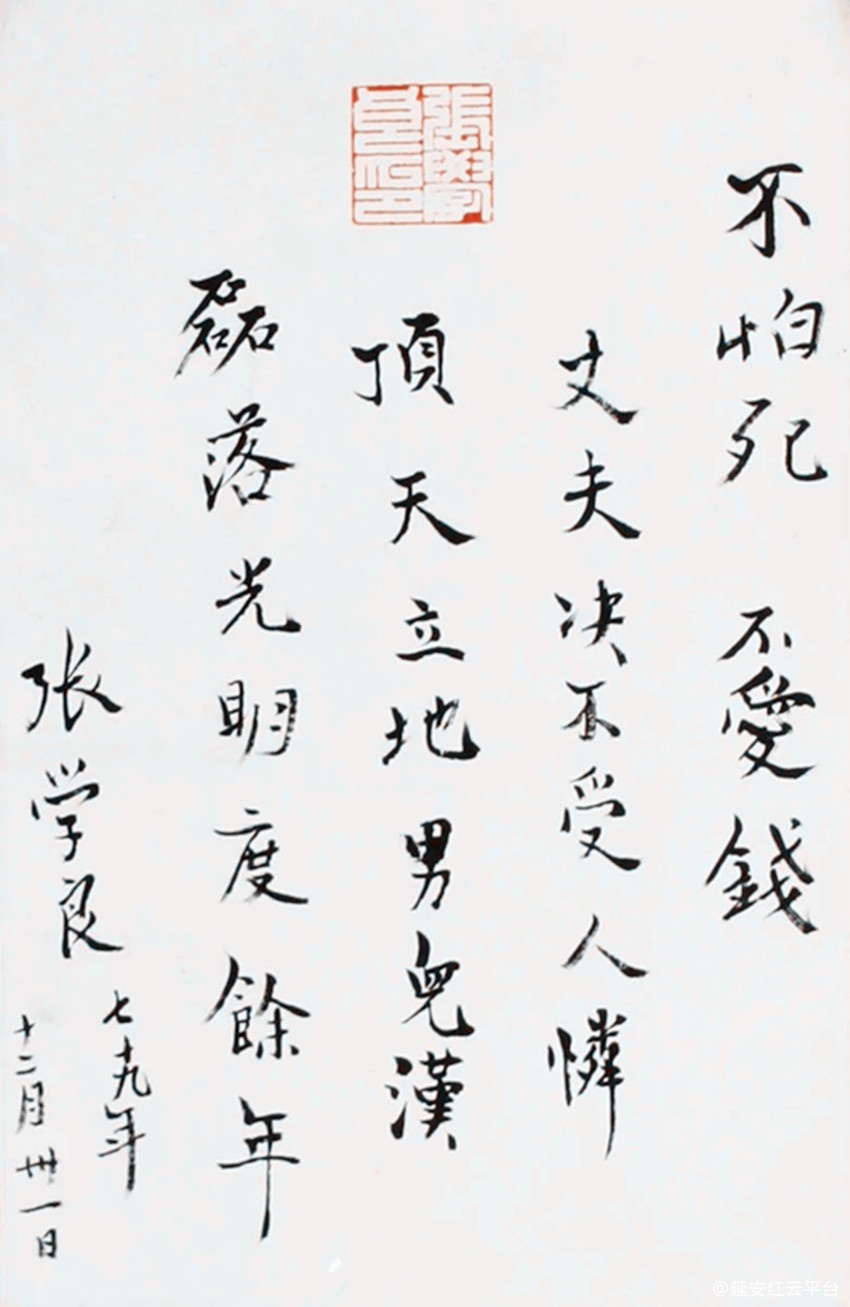 不怕死 不愛錢
丈夫决不受人憐
頂天立地男兒漢
磊落光明度餘年
張学良
七十九年
十二月卅一日
張學良印
@延安红云平台